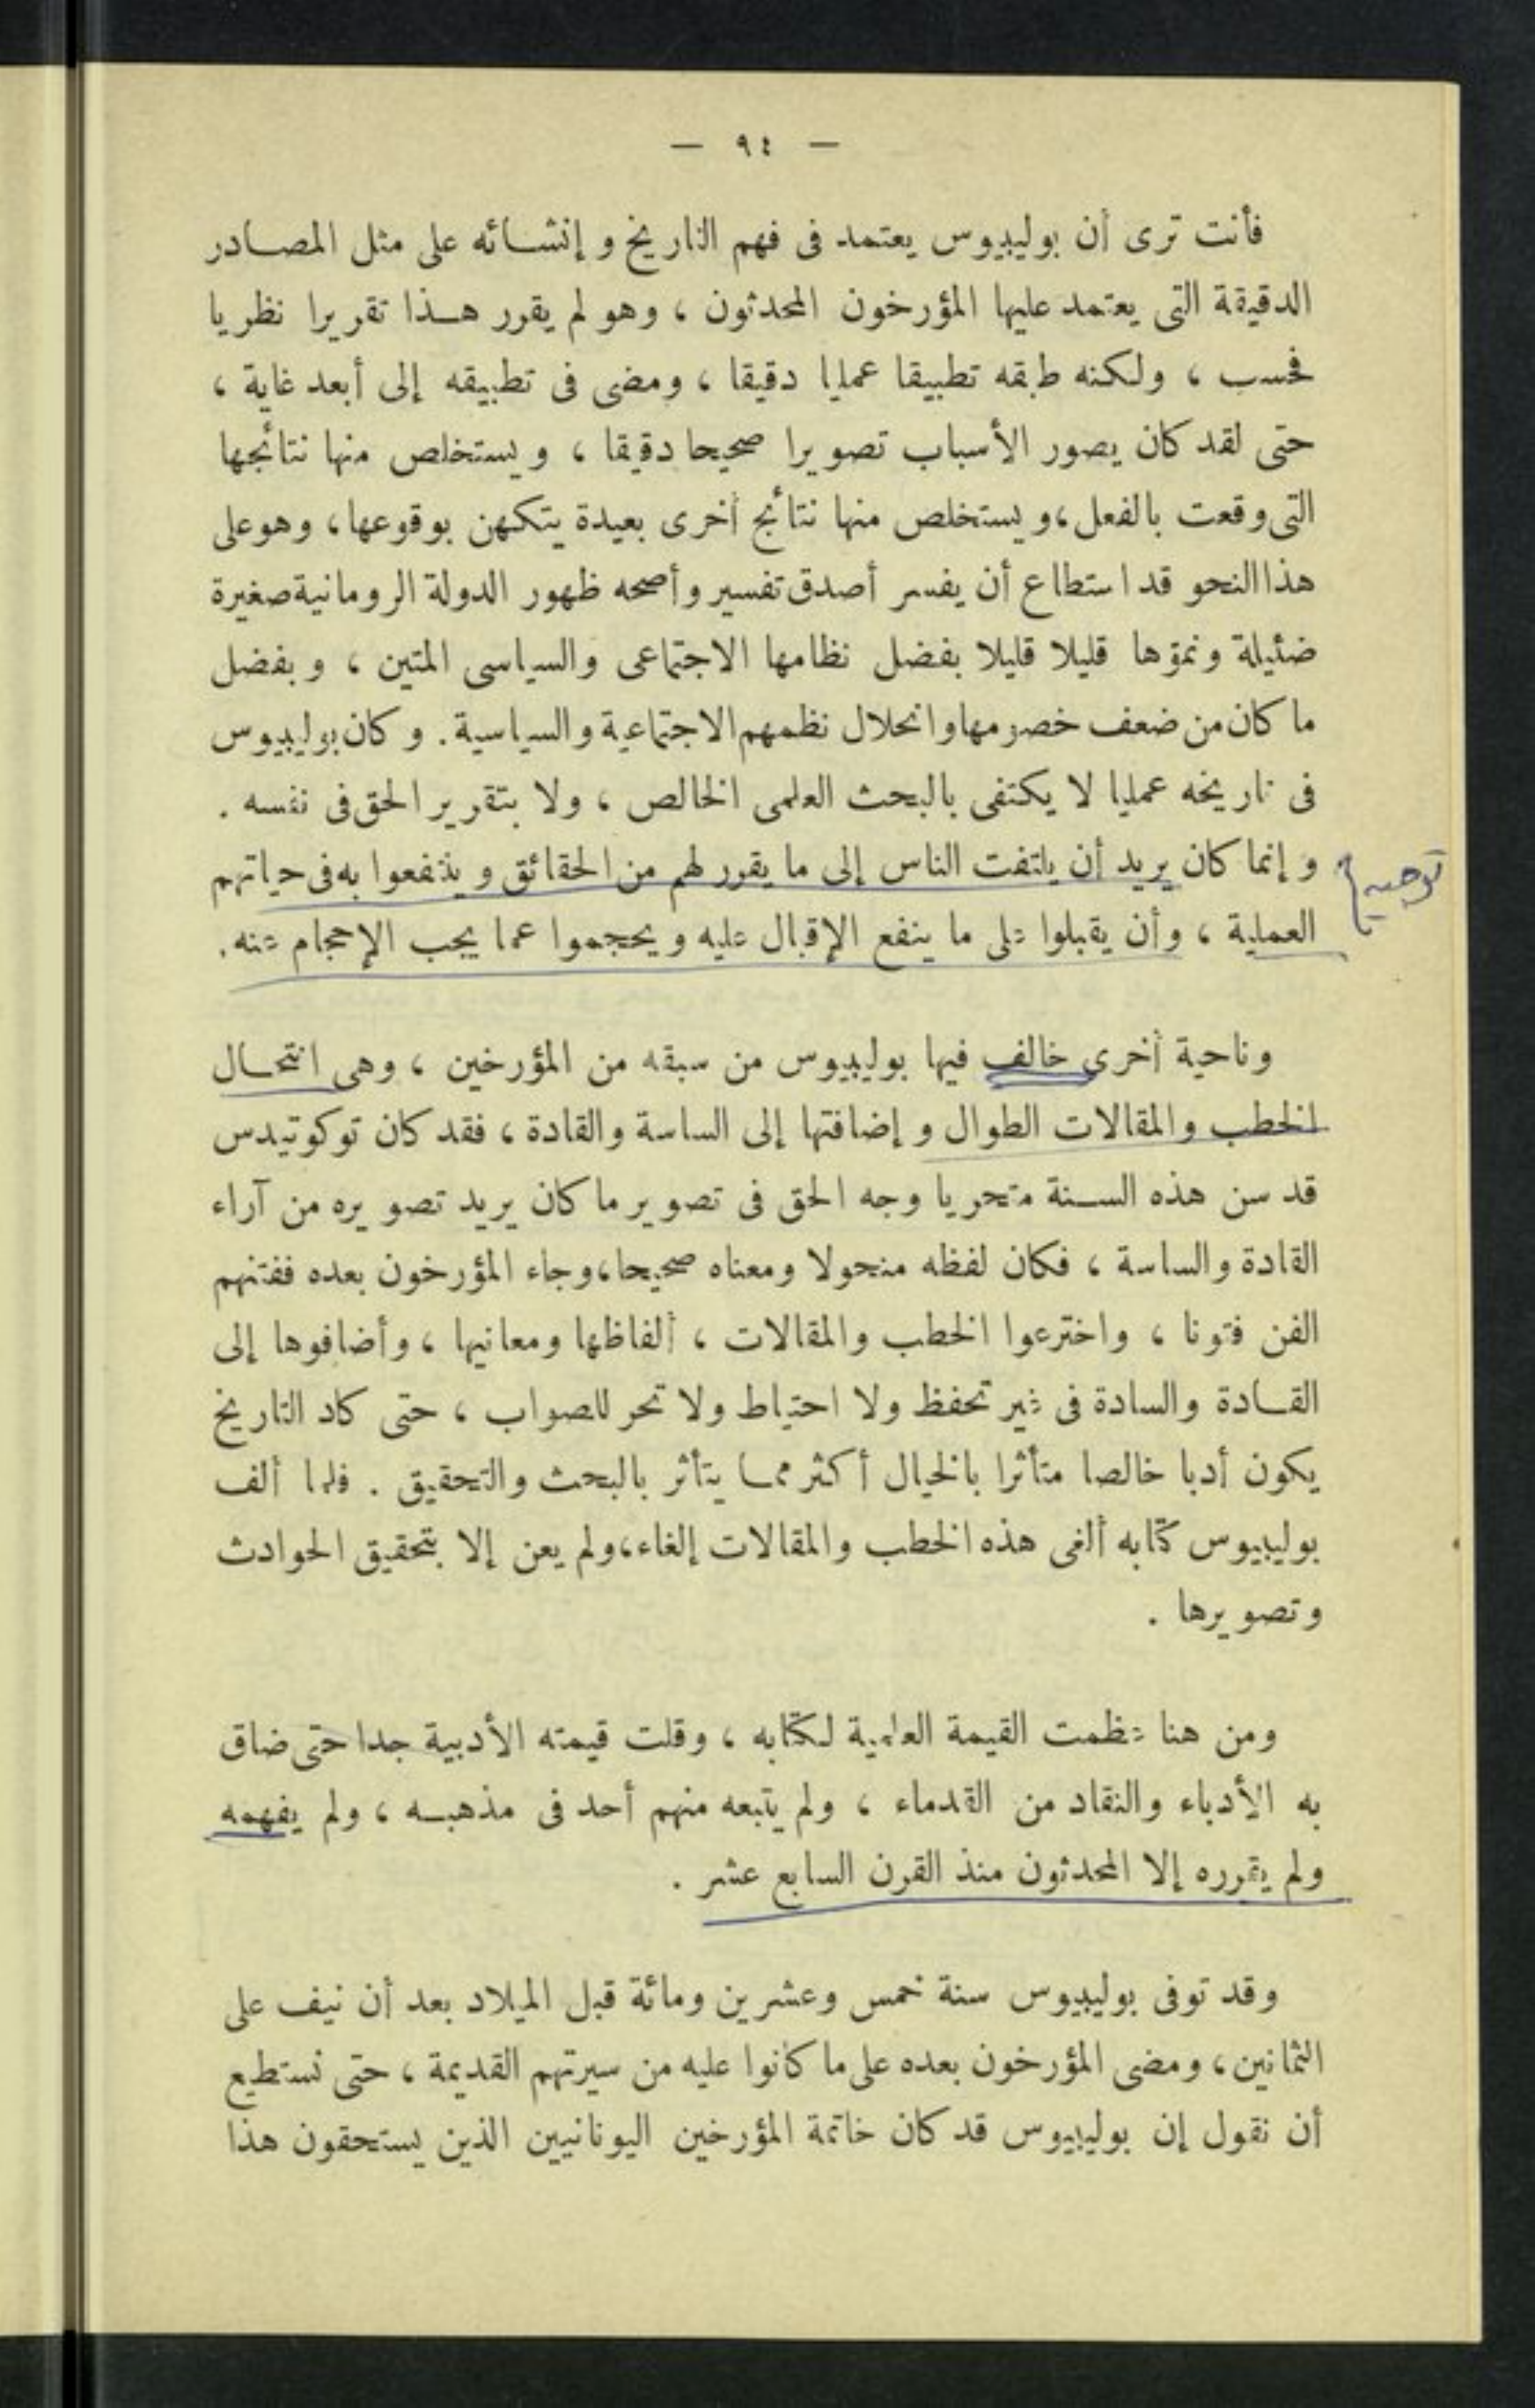 — ٩٤ —
فأنت ترى أن بوليبيوس يعتمد فى فهم التاريخ وإنشائه على مثل المصادر
الدقيقة التى يعتمد عليها المؤرخون المحدثون ، وهو لم يقرر هذا تقريرا نظريا
فحسب ، ولكنه طبقه تطبيقا عمليا دقيقا ، ومضى فى تطبيقه إلى أبعد غاية ،
حتى لقد كان يصور الأسباب تصويرا صحيحا دقيقا ، ويستخلص منها نتائجها
التى وقعت بالفعل ، ويستخلص منها نتائج أخرى بعيدة يتكهن بوقوعها ، وهو على
هذا النحو قد استطاع أن يفسر أصدق تفسير وأصحه ظهور الدولة الرومانية صغيرة
ضئيلة ونموّها قليلا قليلا بفضل نظامها الاجتماعى والسياسى المتين ، وبفضل
ما كان من ضعف خصومها وانحلال نظمهم الاجتماعية والسياسية . وكان بوليبيوس
فى تاريخه عمليا لا يكتفى بالبحث العلمى الخالص ، ولا بتقرير الحق فى نفسه .
وإنما كان يريد أن يلتفت الناس إلى ما يقرر لهم من الحقائق وينتفعوا به فى حياتهم
توجيه
العملية ، وأن يقبلوا على ما ينفع الإقبال عليه ويحجموا عما يجب الإحجام عنه .
وناحية أخرى خالف فيها بوليبيوس من سبقه من المؤرخين ، وهى انتحال
الخطب والمقالات الطوال وإضافتها إلى الساسة والقادة ، فقد كان توكوتيدس
قد سن هذه السنة متحريا وجه الحق فى تصوير ما كان يريد تصويره من آراء
القادة والساسة ، فكان لفظه منحولا ومعناه صحيحا ، وجاء المؤرخون بعده ففتنهم
الفن فتونا ، واخترعوا الخطب والمقالات ، ألفاظها ومعانيها ، وأضافوها إلى
القادة والسادة فى غير تحفظ ولا احتياط ولا تحر للصواب ، حتى كاد التاريخ
يكون أدبا خالصا متأثرا بالخيال أكثر مما يتأثر بالبحث والتحقيق . فلما ألف
بوليبيوس كتابه ألغى هذه الخطب والمقالات إلغاء ، ولم يعن إلا بتحقيق الحوادث
وتصويرها .
ومن هنا عظمت القيمة العلمية لكتابه ، وقلت قيمته الأدبية جدا حتى ضاق
به الأدباء والنقاد من القدماء ، ولم يتبعه منهم أحد فى مذهبه ، ولم يفهمه
ولم يقرره إلا المحدثون منذ القرن السابع عشر .
وقد توفى بوليبيوس سنة خمس وعشرين ومائة قبل الميلاد بعد أن نيف على
الثمانين ، ومضى المؤرخون بعده على ما كانوا عليه من سيرتهم القديمة ، حتى نستطيع
أن نقول إن بوليبيوس قد كان خاتمة المؤرخين اليونانيين الذين يستحقون هذا